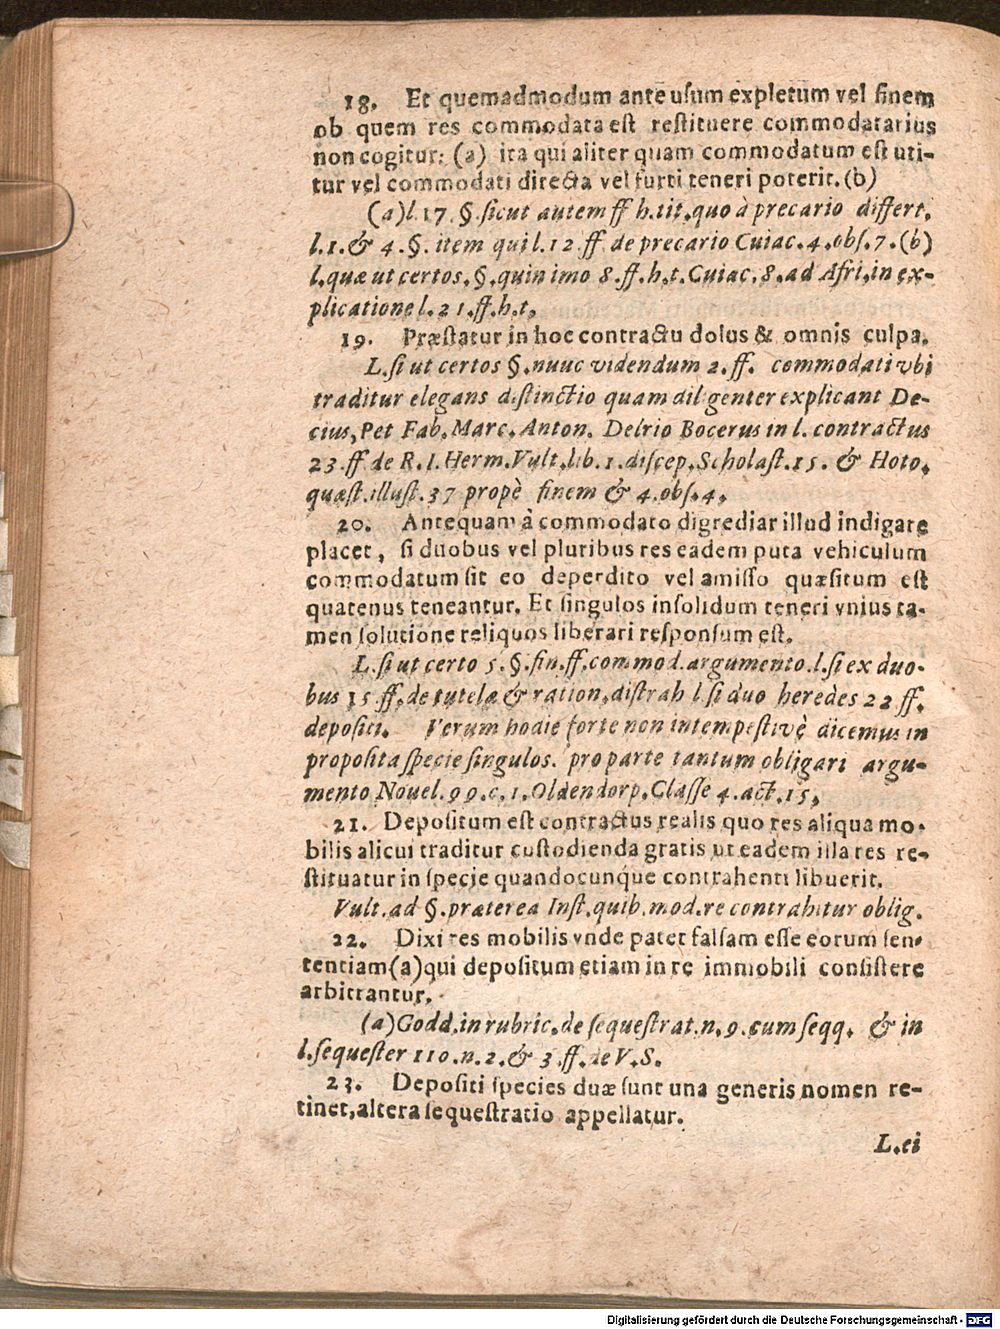 18. Et quemadmodum ante usum expletum vel finem
ob quem res commodata est restituere commodatarius
non cogitur: (a) ita qui aliter quam commodatum est uti-
tur vel commodati directa vel furti teneri poterit. (b)
(a) l. 17. §. sicut autem ff h. tit. quo à precario differt.
l. 1. & 4. §. item qui l. 12 ff de precario Cuiac. 4. obs. 7. (b)
l. quæ ut certos. §. quin imo 8. ff. h. t. Cuiac. 8. ad Afri. in ex-
plicatione l. 21. ff. h. t.
19. Præstatur in hoc contractu dolus & omnis culpa.
L. si ut certos §. nuuc videndum 2. ff. commodati vbi
traditur elegans distinctio quam dil genter explicant De-
cius, Pet Fab. Marc. Anton. Delrio Bocerus in l. contractus
23. ff. de R. I. Herm. Vult. lib. 1. discep. Scholast. 15. & Hoto.
quæst. illust. 37 propè finem & 4. obs. 4.
20. Antequam à commodato digrediar illud indigare
placet, si duobus vel pluribus res eadem puta vehiculum
commodatum sit eo deperdito vel amisso quæsitum est
quatenus teneantur. Et singulos insolidum teneri vnius ta-
men solutione reliquos liberari responsum est.
L. si ut certo 5. §. fin. ff. commod. argumento. l. si ex duo-
bus 15 ff. de tutelæ & ration. distrah l. si duo heredes 22 ff.
depositi. Verum hodie forte non intempestivè dicemus in
proposita specie singulos. pro parte tantum obligari argu-
mento Nouel. 99. c. 1. Oldendorp. Classe 4. act. 15.
21. Depositum est contractus realis quo res aliqua mo-
bilis alicui traditur custodienda gratis ut eadem illa res re-
stituatur in specie quandocunque contrahenti libuerit.
Vult. ad §. præterea Inst. quib. mod. re contrahitur oblig.
22. Dixi res mobilis vnde patet falsam esse eorum sen-
tentiam (a) qui depositum etiam in re immobili consistere
arbitrantur.
(a) Godd. in rubric. de sequestrat. n. 9. cum seqq. & in
l. sequester 110. n. 2. & 3. ff. de V. S.
23. Depositi species duæ sunt una generis nomen re-
tinet, altera sequestratio appellatur.
L. ei
Digitalisierung gefördert durch die Deutsche Forschungsgemeinschaft - DFG